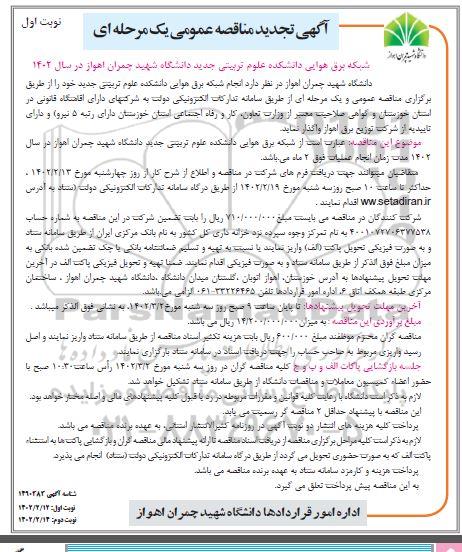 نوبت اول
آگهی تجدید مناقصه عمومی یک مرحله ای
دانشگاه شهید چمران اهواز
شبکه برق هوایی دانشکده علوم تربیتی جدید دانشگاه شهید چمران اهواز در سال ۱۴۰۲
دانشگاه شهید چمران اهواز در نظر دارد انجام شبکه برق هوایی دانشکده علوم تربیتی جدید خود را از طریق
برگزاری مناقصه عمومی و یک مرحله ای از طریق سامانه تدارکات الکترونیکی دولت به شرکتهای دارای اقامتگاه قانونی در
استان خوزستان و گواهی صلاحیت معتبر از وزارت تعاون، کار و رفاه اجتماعی استان خوزستان دارای رتبه ۵ نیرو) و دارای
تاییدیه از شرکت توزیع برق اهواز واگذار نماید.
موضوع این مناقصه: عبارت است از شبکه برق هوایی دانشکده علوم تربیتی جدید دانشگاه شهید چمران اهواز در سال
۱۴۰۲ مدت زمان انجام عملیات فوق ۲ ماه می‌باشد.
متقاضیان میتوانند جهت دریافت فرم های شرکت در مناقصه و اطلاع از شرح کار از روز چهارشنبه مورخ ۱۴۰۲/۲/۱۳ ،
حداکثر تا ساعت ۱۰ صبح روزسه شنبه مورخ ۱۴۰۲/۲/۱۹ از طریق درگاه سامانه تدارکات الکترونیکی دولت (ستاد) به آدرس
ww.setadiran.ir اقدام نمایند .
شرکت کنندگان در مناقصه می بایست مبلغ ۷۱۰/۰۰۰/۰۰۰ ریال را بابت تضمین شرکت در این مناقصه به شماره حساب
۴۰۰۱۰۷۲۷۰۶۳۷۷۵۳۸ به نام تمرکز وجوه سپرده نزد خزانه داری کل کشور به نام بانک مرکزی ایران از طریق سامانه ستاد
و به صورت فیزیکی تحویل پاکت (الف) واریز نمایند یا نسبت به تهیه و تسلیم ضمانتنامه بانکی یا چک تضمین شده بانکی به
میزان مبلغ فوق الذکر از طریق سامانه ستاد و به صورت فیزیکی اقدام نمایند. ضمنا تهیه و تحویل فیزیکی پاکت الف در آخرین
مهلت تحویل پیشنهادها به آدرس خوزستان، اهواز اتوبان ،گلستان میدان دانشگاه ،دانشگاه شهید چمران اهواز ، ساختمان
مرکزی طبقه همکف اتاق ۶، اداره امور قراردادها تلفن ۳۳۲۲۶۴۶۵-۰۶۱ الزامی می‌باشد.
آخرین مهلت تحویل پیشنهادها: تا پایان ساعت ۹ صبح روز سه شنبه مورخ ۱۴۰۲/۳/۲، به نشانی فوق الذکر میباشد .
مبلغ برآوردی این مناقصه : به میزان ۱۴/۲۰۰/۰۰۰/۰۰۰ ریال می باشد.
مناقصه گران محترم موظفند مبلغ ۶۰۰/۰۰۰ ریال بابت هزینه تکثیر اسناد مناقصه از طریق سامانه ستاد واریز نمایند و اصل
رسید واریزی مربوط به صاحب حساب را جهت دریافت اسناد در سامانه ستاد بارگزاری نمایند.
جلسه بازگشایی پاکات الف و ب و ج کلیه مناقصه گران در روز سه شنبه مورخ ۱۴۰۲/۳/۲ رأس ساعت ۱۰:۳۰ صبح با
حضور اعضاء کمیسیون معاملات و مناقصات دانشگاه از طریق سامانه ستاد تشکیل خواهد شد.
لازم به ذکر است دانشگاه با رعایت کلیه قوانین و مقررات مربوطه در رد یا قبول کلیه پیشنهادهای مالی و اصله مختار خواهد بود.
این مناقصه با پیشنهاد حداقل ۲ مناقصه گر رسمیت می یابد.
پرداخت کلیه هزینه های انتشار دو نوبت آگهی در روزنامه کثیرالانتشار استانی، به عهده برنده مناقصه می باشد.
لازم به ذکر است کلیه مراحل برگزاری مناقصه از دریافت اسناد مناقصه تا ارائه پیشنهاد مالی مناقصه گران و بازگشایی پاکت ها به استثناء
پاکت الف که به صورت حضوری تحویل می گردد از طریق درگاه سامانه تدارکات الکترونیکی دولت (ستاد) انجام می پذیرد.
پرداخت هزینه و کارمزد سامانه ستاد به عهده برنده مناقصه می باشد.
به این مناقصه پیش پرداخت تعلق می گیرد.
شناسه آگهی ۱۴۹۰۳۸۳
نوبت اول: ۱۴۰۲/۲/۱۲
نوبت دوم: ۱۴۰۲/۲/۱۳
اداره امور قراردادها دانشگاه شهید چمران اهواز